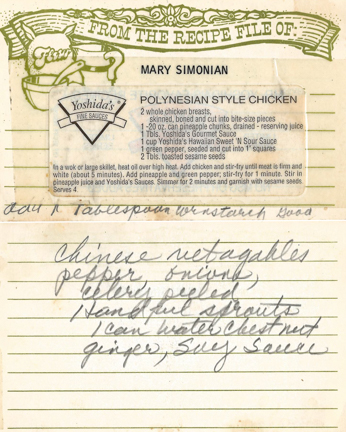 FROM THE RECIPE FILE OF:
MARY SIMONIAN
Yoshida's®
FINE SAUCES
POLYNESIAN STYLE CHICKEN
2 whole chicken breasts,
skinned, boned and cut into bite-size pieces
1 -20 oz. can pineapple chunks, drained - reserving juice
1 Tbls. Yoshida's Gourmet Sauce
1 cup Yoshida's Hawaiian Sweet 'N Sour Sauce
1 green pepper, seeded and cut into 1" squares
2 Tbls. toasted sesame seeds
In a wok or large skillet, heat oil over high heat. Add chicken and stir-fry until meat is firm and
white (about 5 minutes). Add pineapple and green pepper; stir-fry for 1 minute. Stir in
pineapple juice and Yoshida's Sauces. Simmer for 2 minutes and garnish with sesame seeds.
Serves 4
add 1 Tablespoon cornstarch Good
Chinese vetagables
pepper, onions,
celery peeled
Handful sprouts
1 can water chestnut
ginger, Soy Sauce